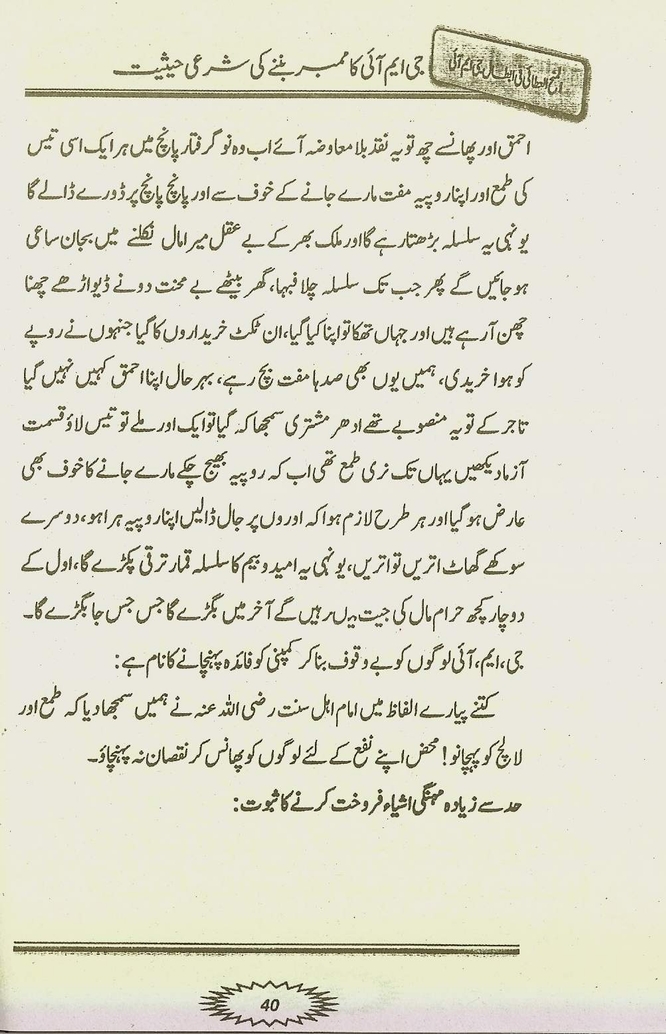 جی ایم آئی کا ممبر بننے کی شرعی حیثیت
احمق اور پھانسے چھ تو یہ نقد بلا معاوضہ آئے اب وہ نو گرفتار پانچ میں ہر ایک اسی تیس
کی طمع اور اپنا روپیہ مفت مارے جانے کے خوف سے اور پانچ پانچ پر ڈورے ڈالے گا
یونہی یہ سلسلہ بڑھتا رہے گا اور ملک بھر کے بے عقل میرا مال نکلنے میں بجان ساعی
ہو جائیں گے پھر جب تک سلسلہ چلا فبہا، گھر بیٹھے بے محنت دونے ڈیواڑھے چھنا
چھن آ رہے ہیں اور جہاں تھکا تو اپنا کیا گیا، ان ٹکٹ خریداروں کا گیا جنہوں نے روپے
کو ہوا خریدی، ہمیں یوں بھی صدہا مفت بچ رہے، بہر حال اپنا احمق کہیں نہیں گیا
تاجر کے تو یہ منصوبے تھے ادھر مشتری سمجھا کہ گیا تو ایک اور ملے تو تیس لاؤ قسمت
آزما دیکھیں یہاں تک نری طمع تھی اب کہ روپیہ بھیج چکے مارے جانے کا خوف بھی
عارض ہو گیا اور ہر طرح لازم ہوا کہ اوروں پر جال ڈالیں اپنا روپیہ ہرا ہو، دوسرے
سوکھے گھاٹ اتریں تو اتریں، یونہی یہ امید و بیم کا سلسلہ قمار ترقی پکڑے گا، اول کے
دو چار کچھ حرام مال کی جیت میں رہیں گے آخر میں بگڑے گا جس جس جا بگڑے گا۔
جی، ایم، آئی لوگوں کو بے وقوف بنا کر کمپنی کو فائدہ پہنچانے کا نام ہے:
کتنے پیارے الفاظ میں امام اہل سنت رضی اللہ عنہ نے ہمیں سمجھا دیا کہ طمع اور
لالچ کو پہچانو! محض اپنے نفع کے لئے لوگوں کو پھانس کر نقصان نہ پہنچاؤ۔
حد سے زیادہ مہنگی اشیاء فروخت کرنے کا ثبوت:
40